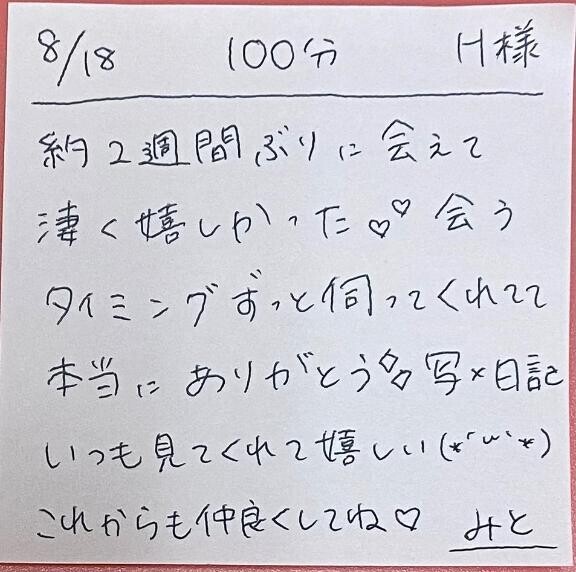 8/18 100分 H様
約2週間ぶりに会えて
凄く嬉しかった♡♡ 会う
タイミングずっと伺ってくれてて
本当にありがとう 写メ日記
いつも見てくれて嬉しい(*´ω`*)
これからも仲良くしてね♡ みと